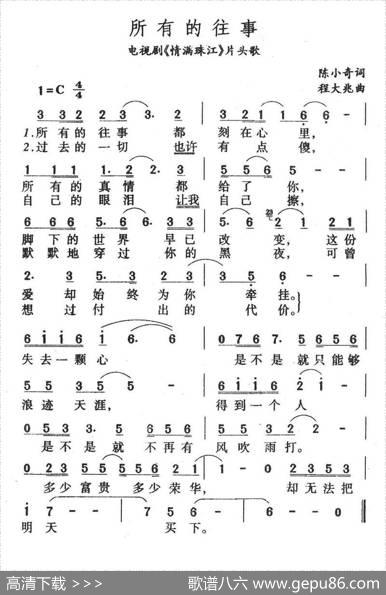 所有的往事
电视剧《情满珠江》片头歌
陈小奇词
1=C 4/4 程大兆曲
3 3 2 2 3 3. 2 3 2 1 1 6 6 -
1.所有的往事都刻在心里,
2.过去的一切也许有点傻,
1 1 1 1. 2 2 3 5 5 6 5 -
所有的真情都给了你,
自己的眼泪让我自己擦,
6 6 6 5. 6 6. 3 5 6 2 1 2 1
脚下的世界早已改变,这份
默默地穿过你的黑夜,可曾
2. 3 5. 1 2. 3 3 5 6 -
爱却始终为你牵挂。
想过付出的代价。
6 1 1 6 1 6. 6 0 6 1 7. 6 5 6 5 6
失去一颗心是不是就只能够
5 5 3 5 5 - 6 1 1 6 2 2 -
浪迹天涯,得到一个人
0 5 5 3 0. 3 5 5 6 5 5 3 2 2 -
是不是就不再有风吹雨打。
0 2 3 5 5 5 6 5 6 2 1 1 - 0 5 6 5 3
多少富贵多少荣华,却无法把
1 7 - - 7 5 6 6 - - 0
明天买下。
高清下载 >>> 歌谱八六 www.gepu86.com